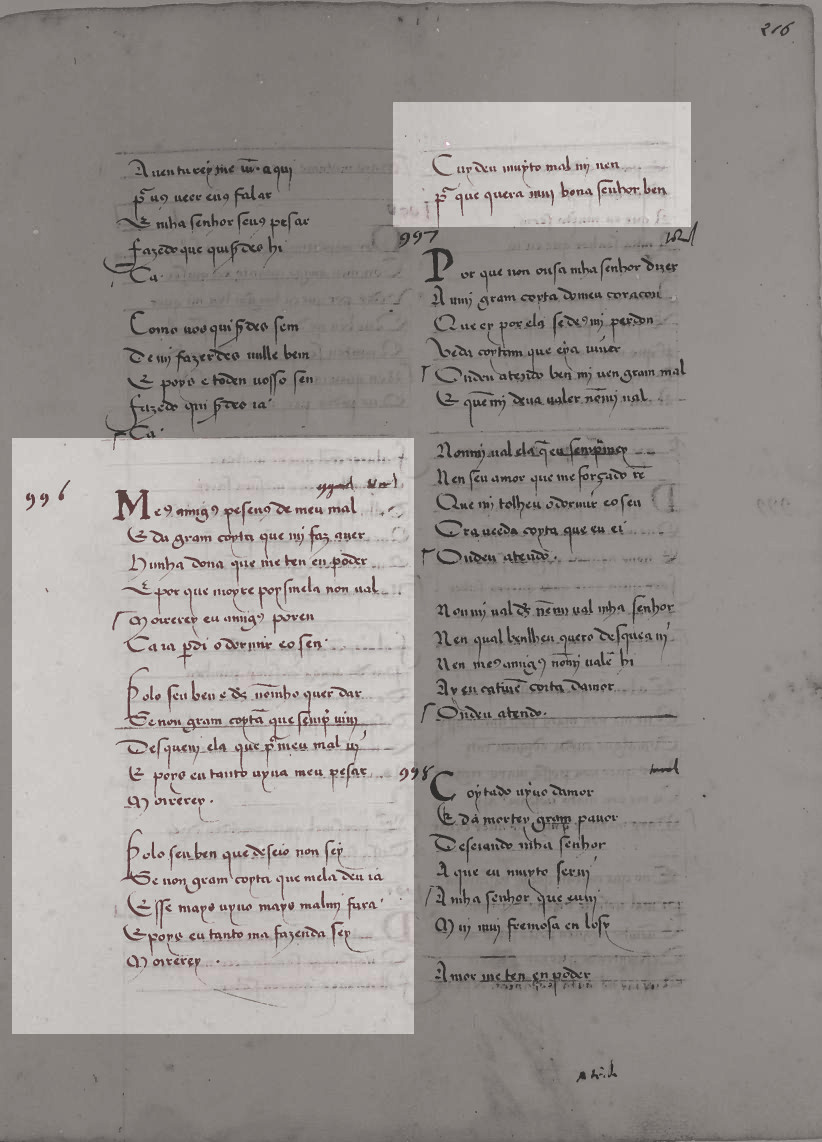 216
A uenturey me ur̄ aqui
p̃ uꝯ ueer euꝯ falar
E mha senhor seuꝯ pesar
fazedo que quiſ̃des hi
Ca.
Como uos quiſ̃des sem
De mi fazerdes nulle bem
E poys e toden uosso sen
fazedo qui ſ̃des ia
Ca.
996
Meꝯ amigꝯ peseuꝯ de meu mal
E da gram coyta que mi faz auer
Hunha dona que me ten en poder
E por que moyre poys mela non ual
Moirerey eu amigꝯ poren
Ca ia p̱di o dormir eo sen
Polo seu ben e ds̄ nōmho quer dar
Se non gram coyta que semp̃ uiui
Desquem ela que p̃ meu mal ui
E poys eu tanto uyua meu pesar
Moirerey.
Polo seu ben que deseio non sey
Se non gram coyta que mela deu ia
E sse mays uyuo mays malmi fara
E poys eu tanto ma fazenda sey
Moirerey.
Cuydeu muyto mal mi uen
p̃ que quera mui bona senhor ben
997
Por que non ousa mha senhor dizer
A mui gram coyta do meu coraçon
Que ey por ela se deꝯ mi perdon
Veda coytam que eya uiuer
Ondeu atendo ben mi uen gram mal
E quē mi deua ualer nēmi ual
Nonmi ual ela q̄ eu semp̃
Nen seu amor que me forçado tē
Que mi tolheu o dormir eo sen
Ora ueeda coyta que eu ei
Ondeu atendo.
Non mi ual ds̄ nēmi ual mha senhor
Nen qual ben lheu quero des que a ui
Nen meꝯ amigꝯ nōmi ualē hi
Ay eu catiuē coita damor
Ondeu atendo.
998
Coytado uyuo damor
E da mortey gram pauor
Deseiando mha senhor
A que eu muyto serui
A mha senhor que eu ui
Mui mui fremosa en losy
Amor me ten en poder